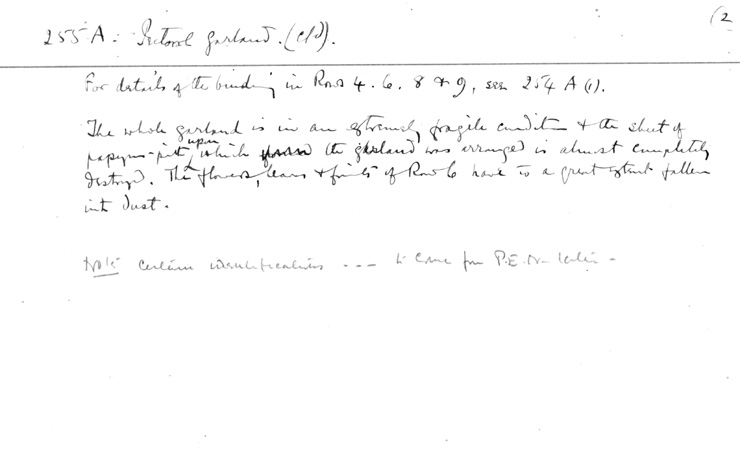 (2
255 A. Pectoral garland. (c/d).
For details of the binding in Rows 4. 6. 8 & 9, see 254 A (1).
The whole garland is in an extremely fragile condition & the sheet of
papyrus-pith, upon which the garland was arranged is almost completely
destroyed. The flowers, leaves & fruits of Row 6 have to a great extent fallen
into dust.
Note Certain identifications --- to come from P.E.N. later -